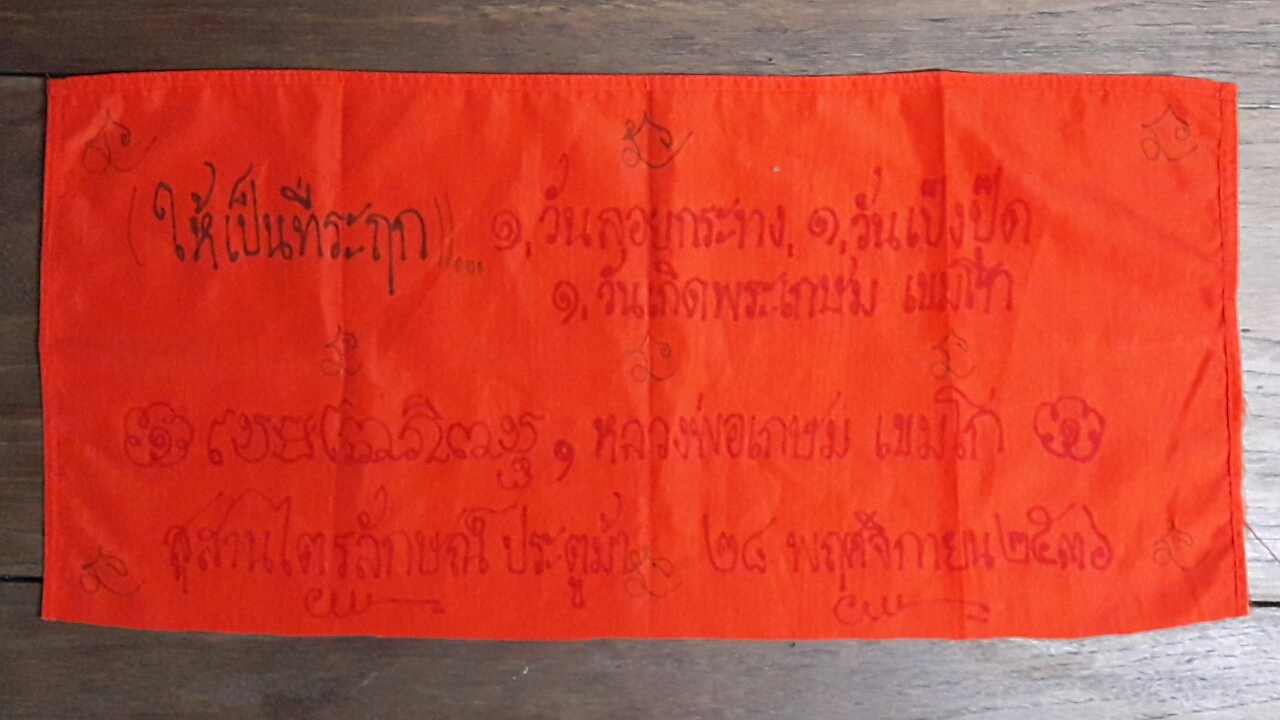 (ให้เป็นที่ระฤก)... ๑, วันลอยกระทง, ๑, วันเป็งปุ๊ด
๑, วันเกิดพระเกษม เขมโก
๑ ๑ หลวงพ่อเกษม เขมโก ๑
สุสานไตรลักษณ์ ประตูม้า ๒๘ พฤศจิกายน ๒๕๓๖